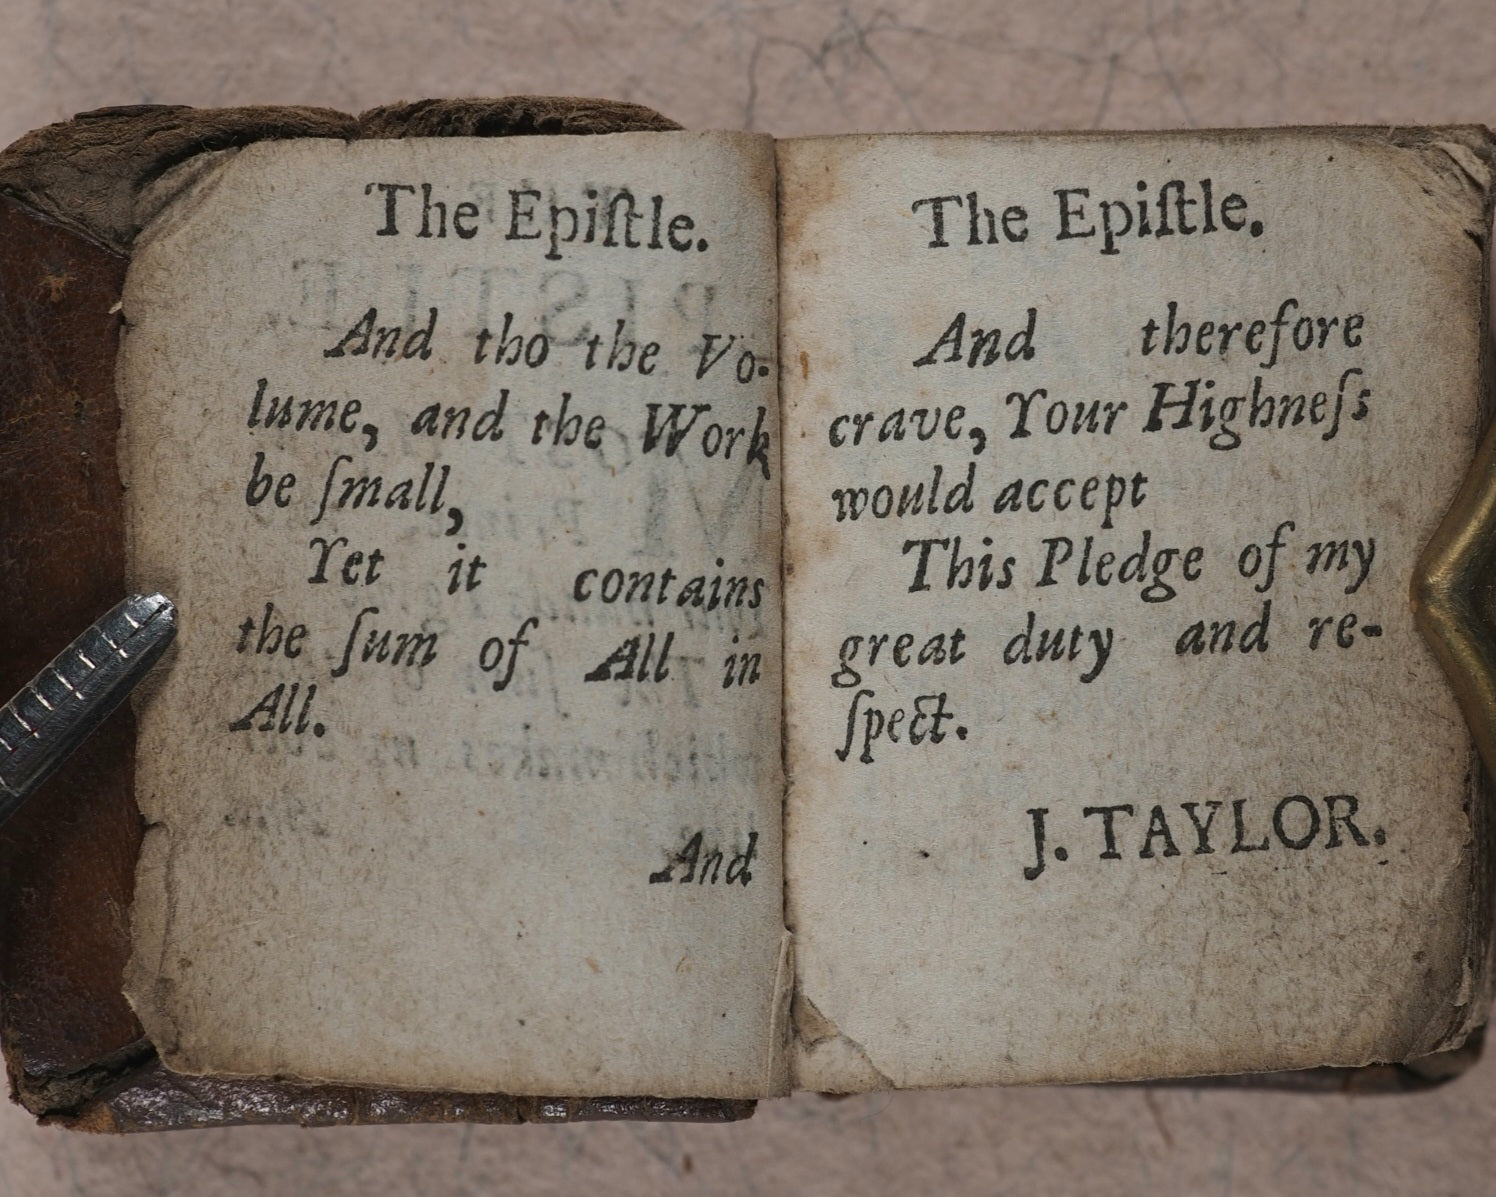 The Epiſtle.
And tho the Vo-
lume, and the Work
be ſmall,
Yet it contains
the ſum of All in
All.
And
The Epiſtle.
And therefore
crave, Your Highneſs
would accept
This Pledge of my
great duty and re-
ſpect.
J. TAYLOR.